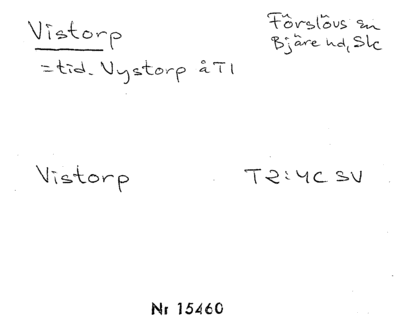 Vistorp
Förslövs sn
Bjäre hd, Sk
= tid. Vystorp å T1
Vistorp
T2:4C SV
Nr 15460